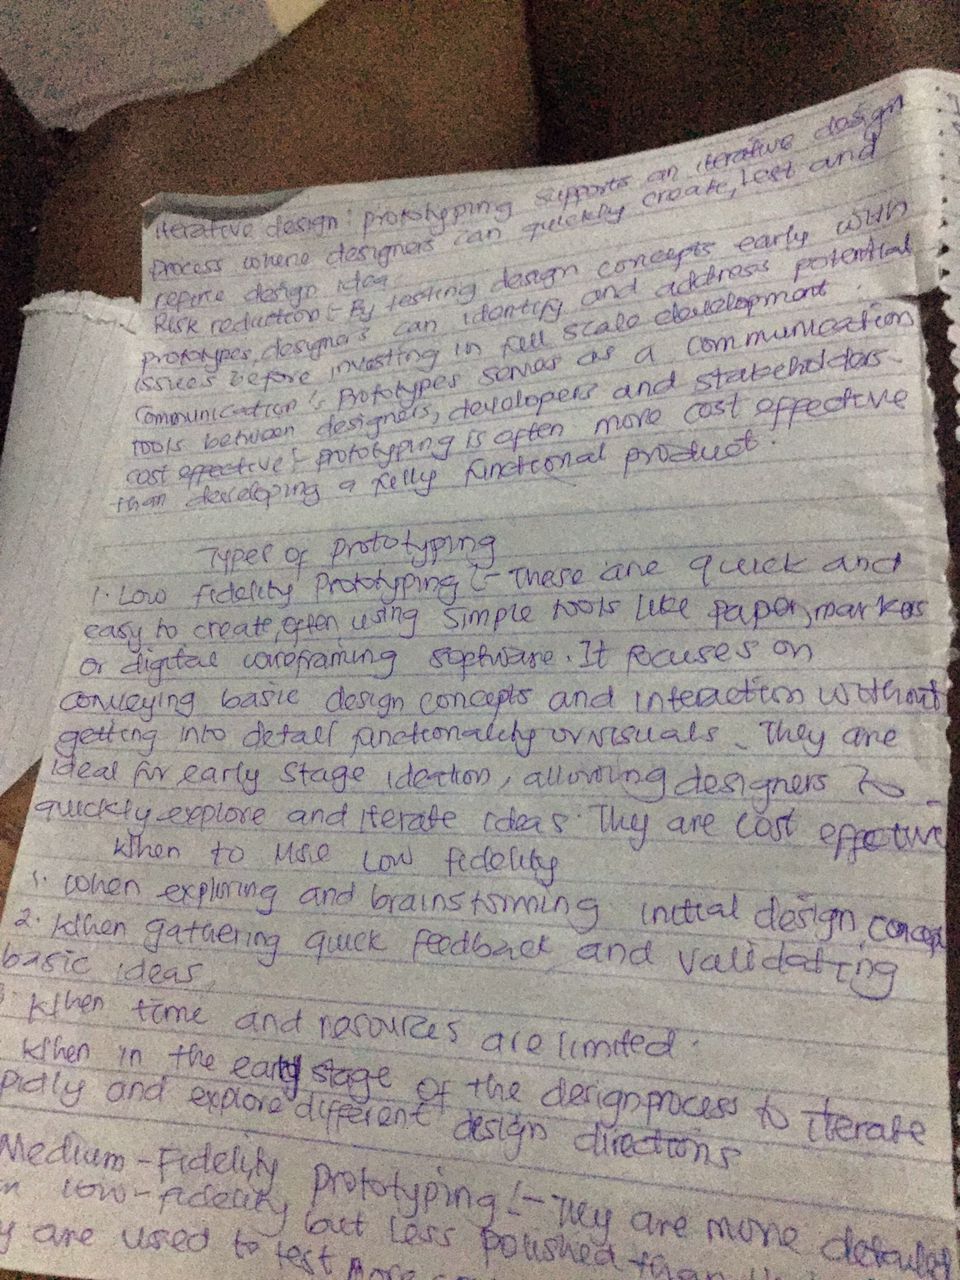 iterative design: prototyping supports an iterative design
process where designers can quickly create, test and
refine design idea
Risk reduction:- By testing design concepts early with
prototypes, designers can identify and address potential
issues before investing in full scale development
Communication:- prototypes serves as a communication
tools between designers, developers and stakeholders.
cost effective:- prototyping is often more cost effective
than developing a fully functional product.
Types of prototyping
1. Low fidelity prototyping:- These are quick and
easy to create, often using simple tools like paper, markers
or digital wireframing software. It focuses on
conveying basic design concepts and interaction without
getting into detail functionality or visuals. They are
ideal for early stage ideation, allowing designers to
quickly explore and iterate ideas. They are cost effective
When to use low fidelity
1. When exploring and brainstorming initial design concep
2. When gathering quick feedback and validating
basic ideas,
3. When time and resources are limited.
When in the early stage of the design process to iterate
pidly and explore different design directions
Medium-Fidelity prototyping:- They are more detailed
n low-fidelity but less polished than
y are used to test more